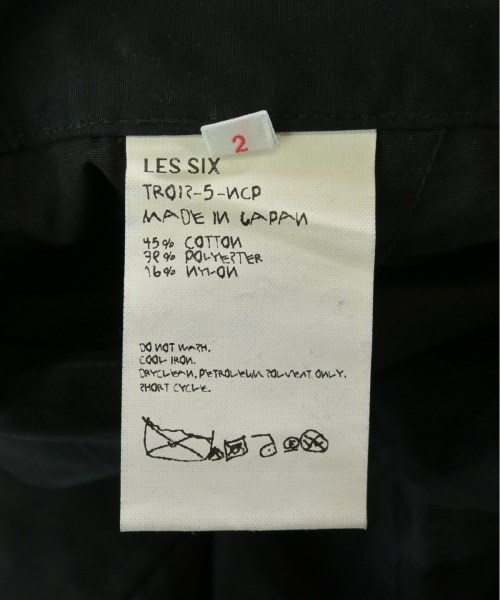 2
LES SIX
TR012-5-NCP
MADE IN JAPAN
45% COTTON
39% POLYESTER
16% NYLON
DO NOT WASH.
COOL IRON.
DRYCLEAN. PETROLEUM SOLVENT ONLY.
SHORT CYCLE.